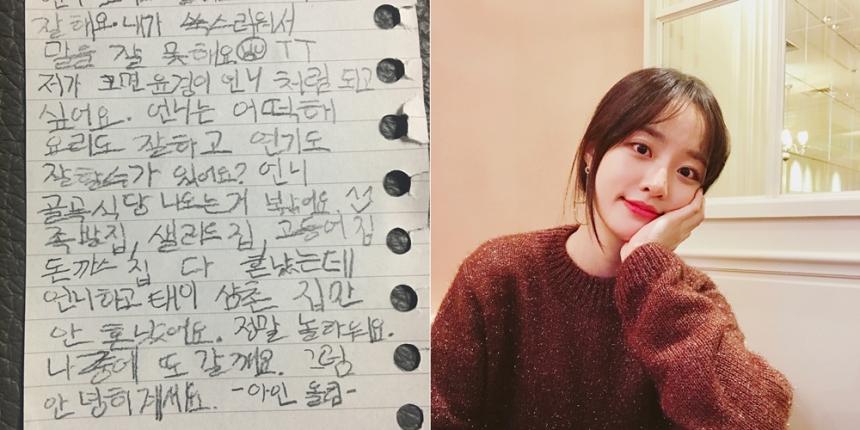 잘해요. 내가 쑥스러워서
말을 잘 못해요 TT
저가 크면 윤경이 언니 처럼 되고
싶어요. 언니는 어떡해
요리도 잘하고 연기도
잘할수가 있어요? 언니
골목식당 나오는거 봤어요.
족발집, 샐러드집, 고등어집
돈까스 집 다 혼났는데
언니하고 태이 삼촌 집만
안 혼났어요. 정말 놀라워요.
나중에 또 갈께요. 그럼
안녕히 계세요. -아인 올림-